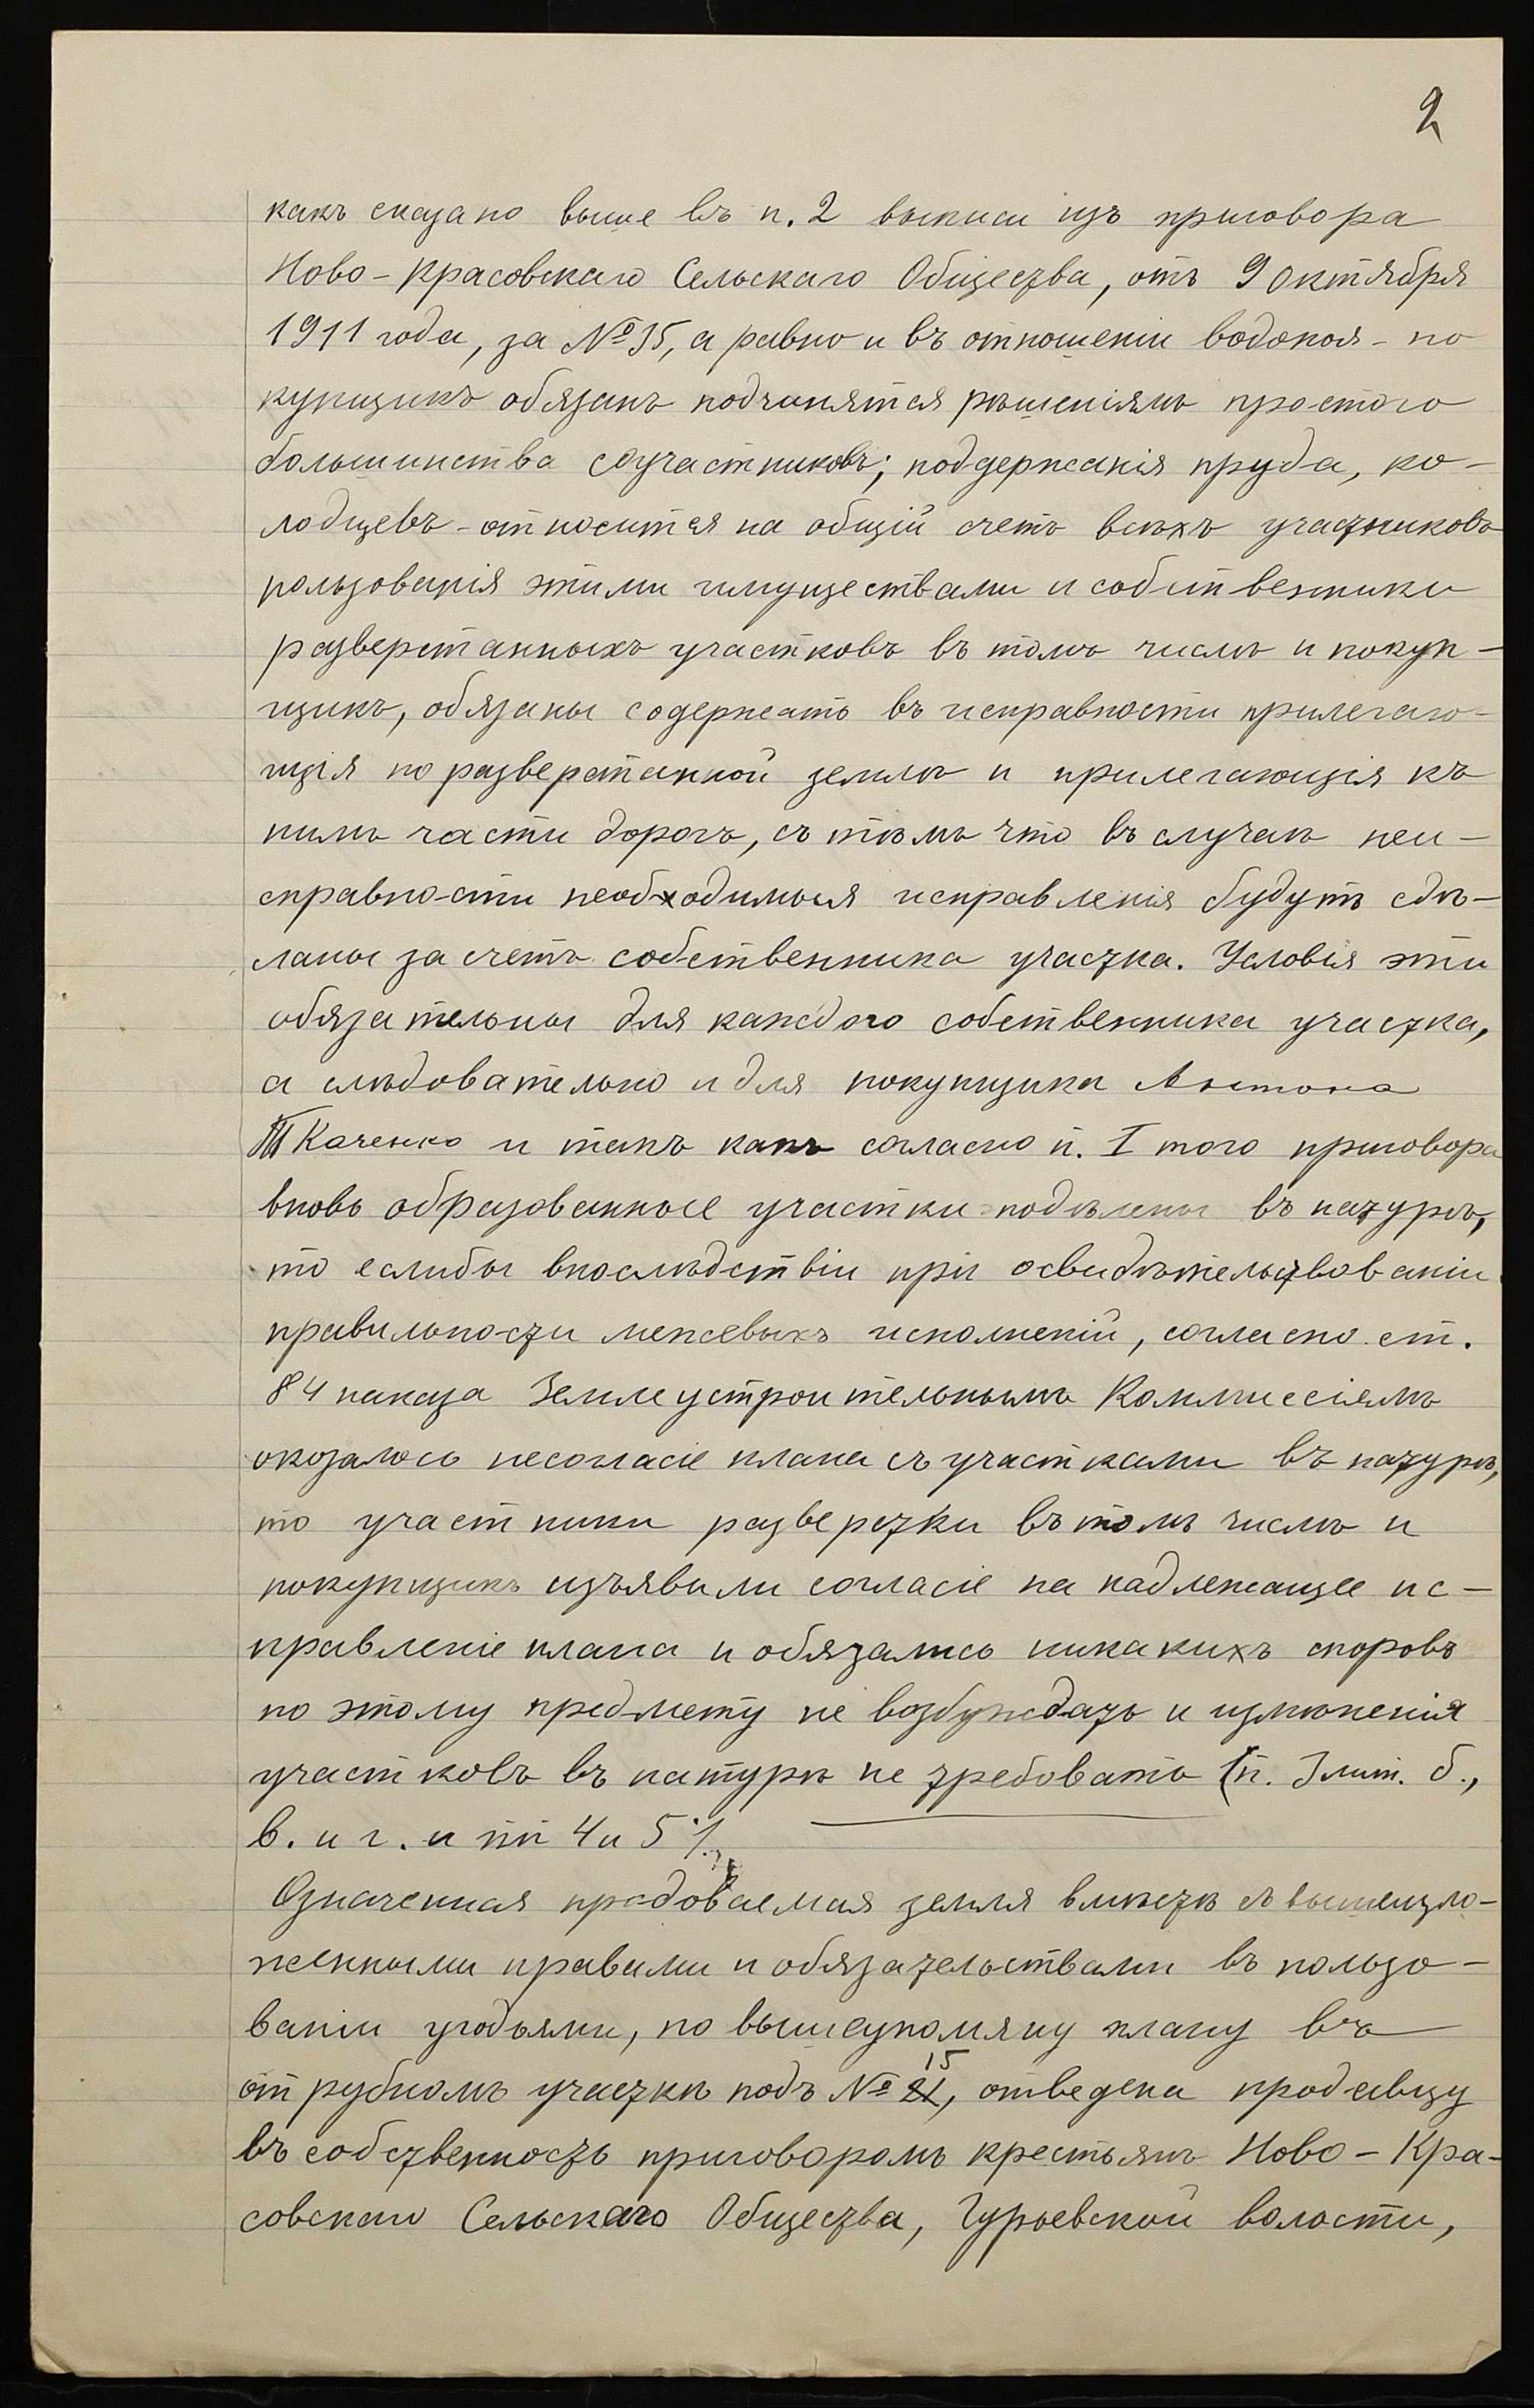 2
какъ сказано выше въ п. 2 выписи изъ приговора
Ново-Красовскаго Сельскаго Общества, отъ 9 Октября
1911 года, за № 15, а равно и въ отношеніи водопоя - по
купщикъ обязанъ подчинятся рѣшеніямъ простого
большинства соучастниковъ; поддержанія пруда, ко-
лодцевъ - относится на общій счетъ всѣхъ участниковъ
пользованія этими имуществами и собственники
разверстанныхъ участковъ въ томъ числѣ и покуп-
щикъ, обязаны содержать въ исправности прилегаю-
щія по разверстанной землѣ и прилегающія къ
нимъ части дорогъ, съ тѣмъ что въ случаѣ неи-
справности необходимыя исправленія будутъ сдѣ-
ланы за счетъ собственника участка. Условія эти
обязательны для каждого собственника участка,
а слѣдовательно и для покупщика Антона
Ткаченко и такъ какъ согласно п. I того приговора
вновь образованные участки подѣлены въ натурѣ,
то еслибы впослѣдствіи при освидѣтельствованіи
правильности межевыхъ исполненій, согласно ст.
84 наказа Землеустроительнымъ Коммиссіямъ
оказалось несогласіе плана съ участками въ натурѣ,
то участники разверстки въ томъ числѣ и
покупщикъ изъявили согласіе на надлежащее ис-
правленіе плана и обязались никакихъ споровъ
по этому предмету не возбуждать и измѣненія
участковъ въ натурѣ не требовать (п. 3 лит. б.,
в. и г. и пп 4 и 5%.
Означенная продоваемая земля вмѣстѣ съ вышеизло-
женными правами и обязательствами въ пользо-
ваніи угодьями, по вышеупомяну плану въ
отрубномъ участкѣ подъ № 15, отведена продавцу
въ собственность приговоромъ крестьянъ Ново-Кра-
совскаго Сельскаго Общества, Гурьевской волости,